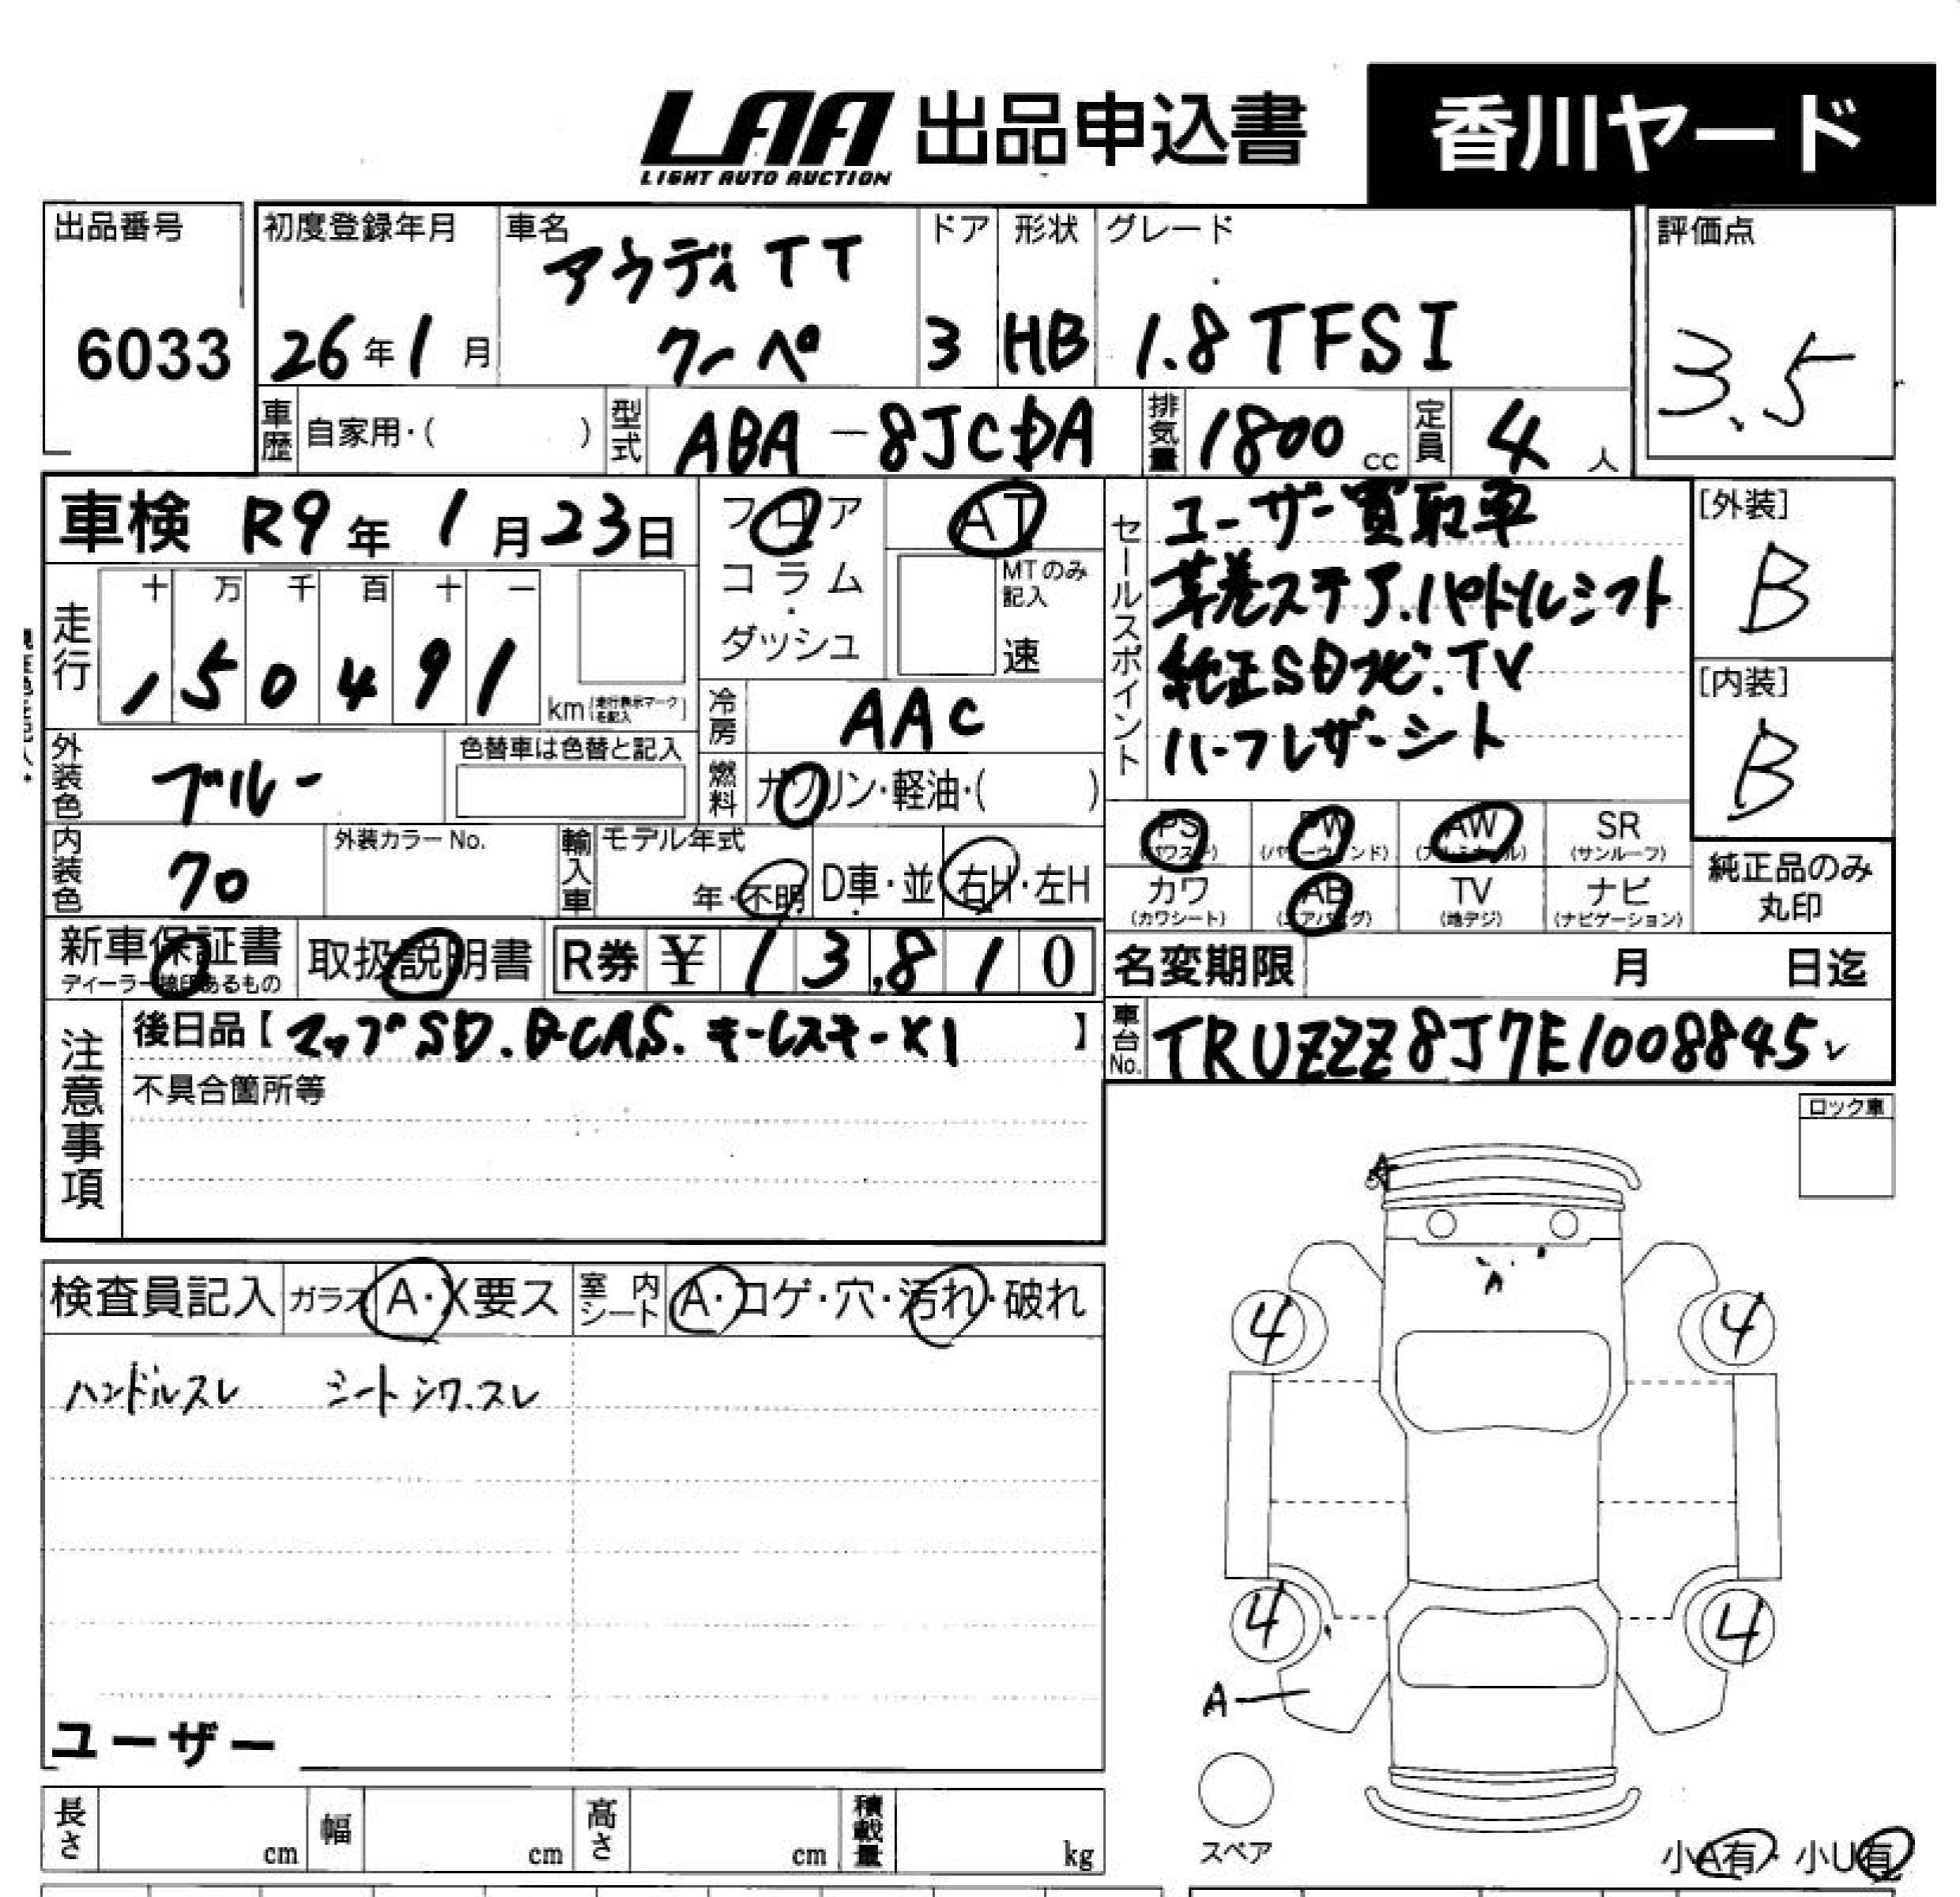 LAA 出品申込書 香川ヤード
LIGHT AUTO AUCTION
出品番号 初度登録年月 車名 ドア 形状 グレード 評価点
アウディ TT
6033 26年1月 クーペ 3 HB 1.8 TFSI 3.5
車歴 自家用・( ) 型式 ABA-8JCDA 排気量 1800 cc 定員 4 人
車検 R9年 1月23日
フロア AT
コラム・ダッシュ
MTのみ記入 速
セールスポイント
ユーザー買取車
革巻ステア.パドルシフト
純正SDナビ.TV
ハーフレザーシート
[外装] B
[内装] B
走行 十 万 千 百 十 一
1 5 0 4 9 1 km (走行表示マークを記入)
冷房 AAC
外装色 ブルー 色替車は色替と記入
燃料 ガソリン・軽油・( )
内装色 クロ 外装カラーNo.
輸入車 モデル年式 年・不明 D車・並 右H・左H
PS (パワステ) PW (パワーウィンド) AW (アルミホイル) SR (サンルーフ)
カワ (カワシート) AB (エアバッグ) TV (地デジ) ナビ (ナビゲーション)
純正品のみ
丸印
新車保証書 取扱説明書 R券 ¥ 13,810
ディーラー捺印あるもの
名変期限 月 日迄
注意事項
後日品【マップSD.B-CAS.キーレスキーX1 】
不具合箇所等
車台No. TRUZZZ8J7E1008845
ロック車
検査員記入 ガラス A・X要ス 室内シート A・コゲ・穴・汚れ・破れ
ハンドルスレ シートシワ.スレ
A
A
4 4
4 4
A
スペア
小A有・小U有
ユーザー
長さ cm 幅 cm 高さ cm 積載量 kg